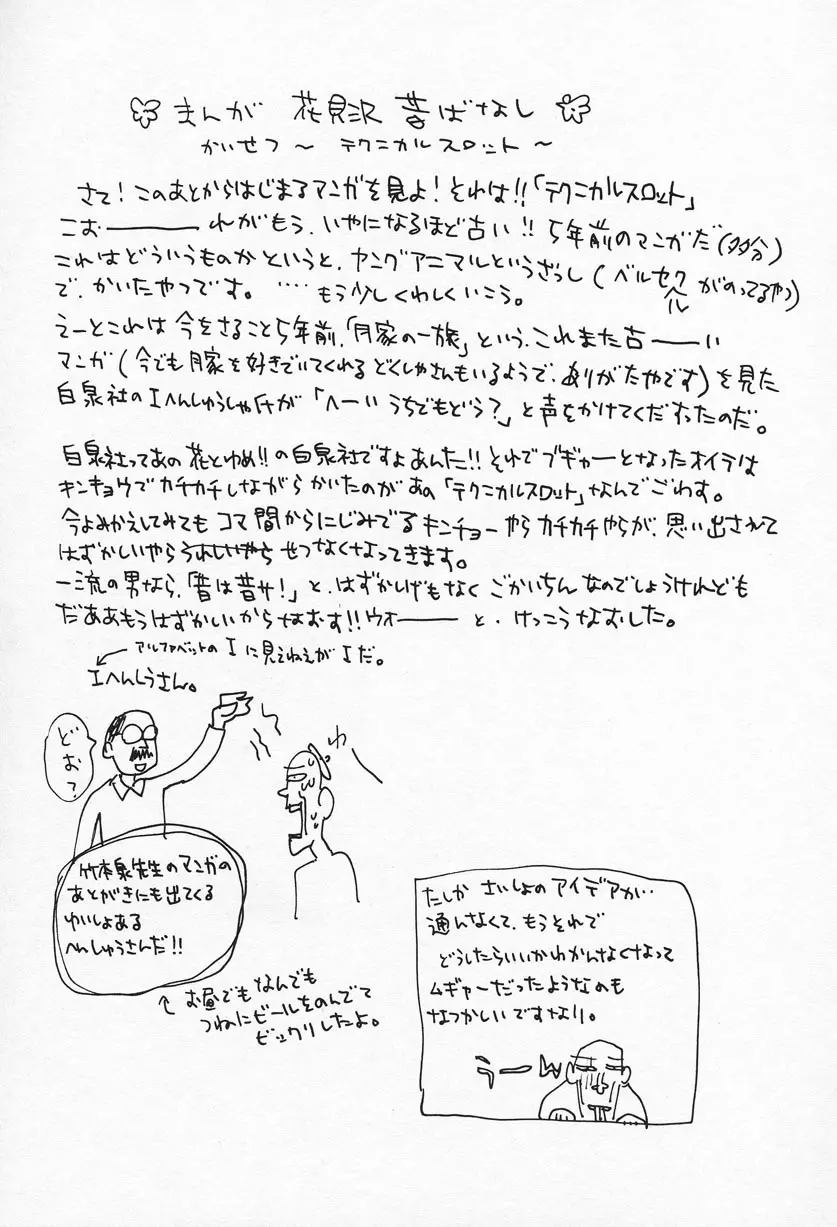 まんが 花見沢 昔ばなし
かいせつ〜 テクニカルスロット 〜
さて！このあとからはじまるマンガを見よ！それは!!「テクニカルスロット」
こお――――れがもう、いやになるほど古い!! 5年前のマンガだ(多分)
これはどういうものかというと、ヤングアニマルというざっし(ベルセクルがのってるやつ)
へ
で、かいたやつです。 ‥‥もう少しくわしくいこう。
えーとこれは今をさること5年前、「月家の一族」という、これまた古――い
マンガ(今でも月家を好きでいてくれるどくしゃさんもいるようで、ありがたやです)を見た
白泉社のIへんしゅうしゃ氏が「へーいうちでもどう？」と声をかけてくだすったのだ。
白泉社ってあの花とゆめ!!の白泉社ですよあんた!!それでブギャーとなったオイラは
キンキョウでカチカチしながらかいたのがあの「テクニカルスロット」なんでごわす。
今よみかえしてみてもコマ間からにじみでるキンチョーやらカチカチやらが、思い出されて
はずかしいやらうれしいやらせつなくなってきます。
一流の男なら、「昔は昔サ！」と、はずかしげもなくごかいちんなのでしょうけれども
だああもうはずかしいからなおす!!ウオ――― と、けっこうなおした。
アルファベットのIに見えねえがIだ。
Iへんしうさん。
どお？
わ
竹本泉先生のマンガの
あとがきにも出てくる
ゆいしょある
へんしゅうさんだ!!
お昼でもなんでも
つねにビールをのんでて
ビックリしたよ。
たしかさいしょのアイデアが‥
通んなくて、もうそれで
どうしたらいいかわかんなくなって
ムギャーだったようなのも
なつかしいですなり。
うーん